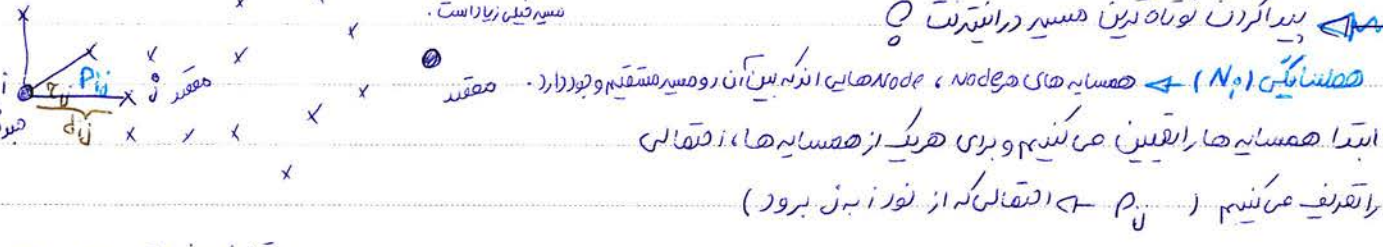 مسیر قبلی زیاد است.
پیدا کردن کوتاه ترین مسیر در اینترنت ؟
همسایگی (Ni) ⇐ همسایه های هر Node ، Node هایی اند که بین آن دو مسیر مستقیم وجود دارد.
مقصد
i τij Pij j مقصد
dij
ابتدا همسایه ها را تعیین می کنیم و برای هر یک از همسایه ها، احتمالی
را تعریف می کنیم ( Pij ⇐ احتمالی که از نود i به j برود )